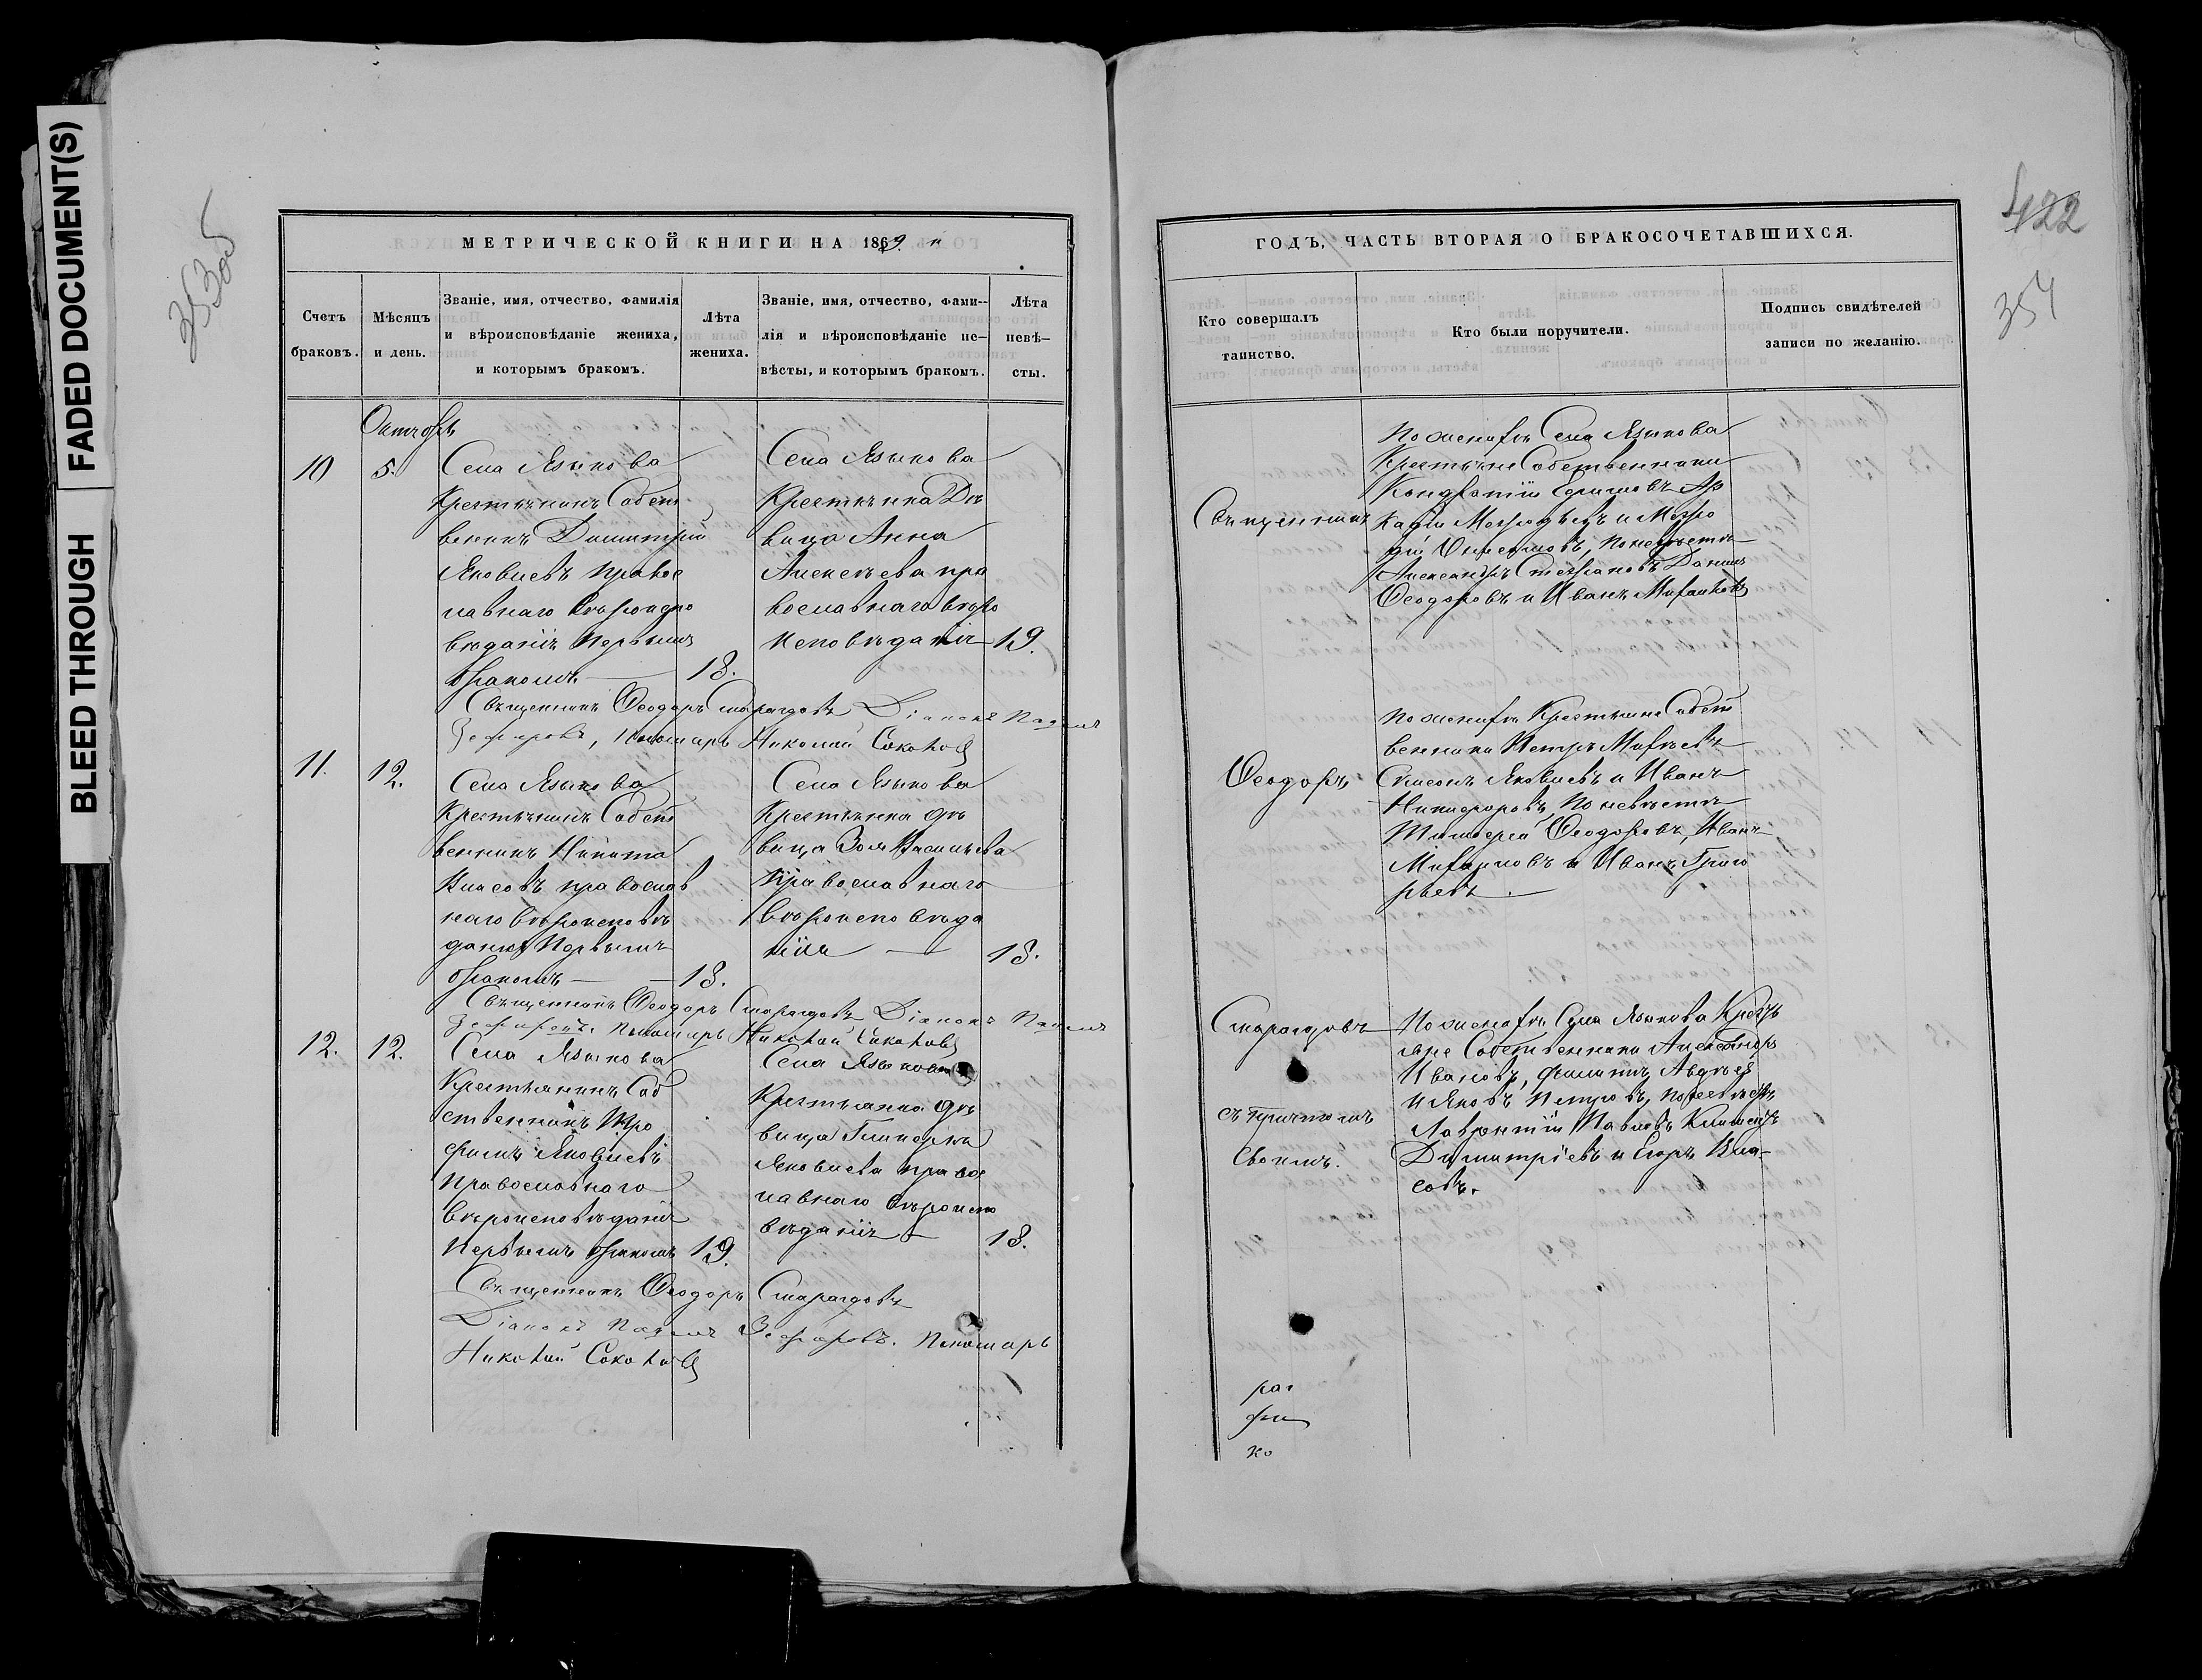 BLEED THROUGH
FADED DOCUMENT(S)
353об
МЕТРИЧЕСКОЙ КНИГИ НА 1869.
Счетъ
браковъ.
Мѣсяцъ
и день.
Званіе, имя, отчество, фамилія
и вѣроисповѣданіе жениха,
и которымъ бракомъ.
Лѣта
жениха.
Званіе, имя, отчество, фами--
лія и вѣроисповѣданіе не--
вѣсты, и которымъ бракомъ.
Лѣта
невѣ-
сты.
Октябрь
10
5.
Села Языкова
Крестьянинъ Собст
венникъ Димитрій
Яковлевъ правос
лавнаго вѣроиспо
вѣданія первымъ
бракомъ.
18.
Села Языкова
Крестьянка Дѣ
вица Анна
Алексѣева пра
вославнаго вѣро
исповѣданія
19.
Священникъ Феодоръ Смарагдовъ Діаконъ Павелъ
Зефировъ, Пономарь Николай Соколовъ
11.
12.
Села Языкова
Крестьянинъ Собст
венникъ Никита
Власовъ православ
наго вѣроисповѣ
данія первымъ
бракомъ
18.
Села Языкова
Крестьянка дѣ
вица Зоя Васильева
православнаго
вѣроисповѣда
нія
18.
Священникъ Феодоръ Смарагдовъ Діаконъ Павелъ
Зефировъ. Пономарь Николай Соколовъ
12.
12.
Села Языкова
Крестьянинъ Соб
ственникъ Тро
фимъ Яковлевъ
православнаго
вѣроисповѣданія
первымъ бракомъ
19.
Села Языкова
Крестьянка дѣ
вица Гликерія
Яковлева правос
лавнаго вѣроиспо
вѣданія
18.
Священникъ Феодоръ Смарагдовъ
Діаконъ Павелъ Зефировъ. Пономарь
Николай Соколовъ
422
354
ГОДЪ, ЧАСТЬ ВТОРАЯ О БРАКОСОЧЕТАВШИХСЯ.
Кто совершалъ
таинство.
Кто были поручители.
Подпись свидѣтелей
записи по желанію.
Священникъ
Феодоръ
Смарагдовъ
съ причтомъ
своимъ.
По женихѣ Села Языкова
Крестьяне Собственники
Кондратій Ефимовъ Ар
кадій и
Онисимовъ, по невѣстѣ
Александръ Стефановъ Данилъ
Феодоровъ и Иванъ Михайловъ
По женихѣ Крестьяне Собст
венники Петръ
Симеонъ Яковлевъ и Иванъ
Никифоровъ, по невѣстѣ
Тимофей Феодоровъ, Иванъ
Михайловъ и Иванъ Григо
рьевъ.
По женихѣ Села Языкова Кресть
яне Собственники Александръ
Ивановъ, Филиппъ Авдѣевъ
и Яковъ Петровъ, по невѣстѣ
Лаврентій Павловъ Климентъ
Димитріевъ и Егоръ Вла-
совъ.